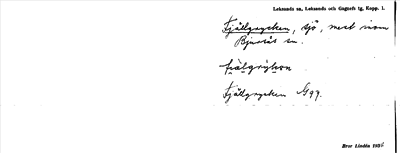 Leksands sn, Leksands och Gagnefs tg, Kopp. l.
Fjällgrycken, sjö, mest inom
Bjursås sn.
fjälgrýkən
Fjällgrycken G97.
Bror Lindén 1935